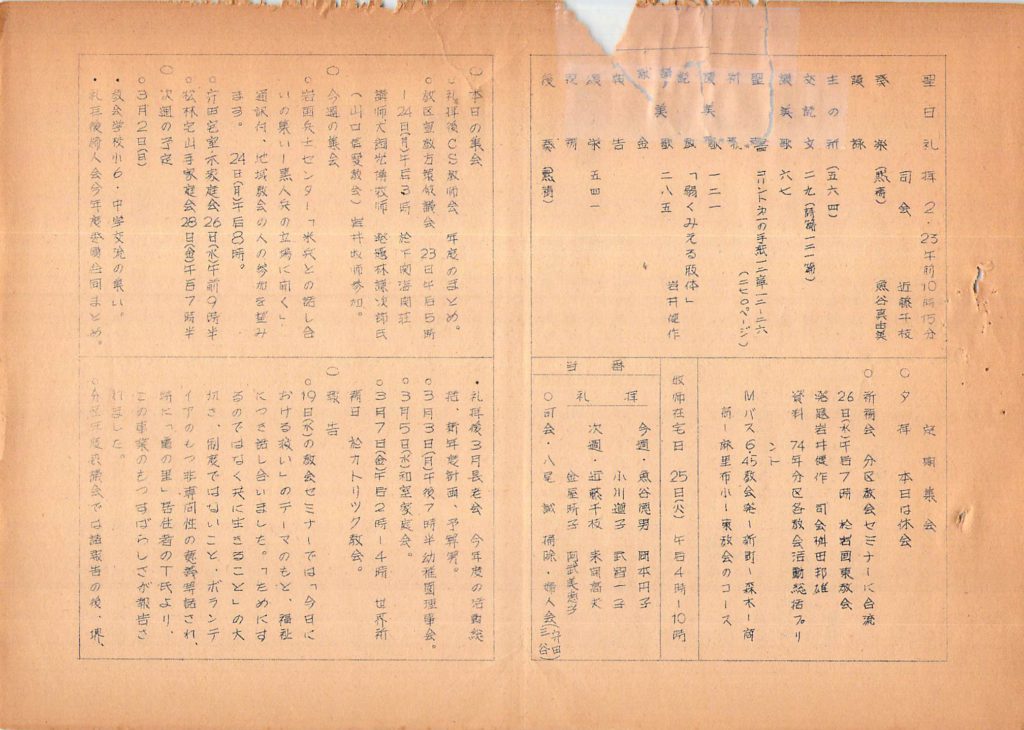 聖日礼拝 2・23午前10時15分
司会 近藤千枝
奏楽 (黙祷) 魚谷真由美
頌詠
主の祈 (五六四)
交読文 二九 (詩篇一二一篇)
讃美歌 六七
聖書 コリント第一の手紙一二章一二-二六
(二七〇ページ)
祈祷
讃美歌 一二一
説教 「弱くみえる肢体」 岩井健作
讃美歌 二八五
献金
報告
頌栄 五四一
祝祷
後奏 (黙祷)
定期集会
○夕拝 本日は休会
○祈祷会 分区教会セミナーに合流
26日(水)午后7時 於岩国東教会
発題岩井健作 司会桝田邦雄
資料 74年分区各教会活動総括プリ
ント
Mバス6.45教会発ー新町ー森木ー商
前ー麻里布小ー東教会のコース
牧師在宅日 25日(火) 午后4時ー10時
当番
礼拝
今週・魚谷徳男 岡本円子
小川道子 武習一子
次週・近藤千枝 来岡高夫
金屋晴子 阿武美恵子
○司会・八尾 誠 掃除・婦人会
○本日の集会
○礼拝後CS教師会 年度のまとめ。
○教区宣教方策会議 23日午后5時
ー24日(月)午后3時 於下関海関荘
講師犬飼光博牧師 発題林謙次師氏
(山口信愛教会) 岩井牧師参加。
○今週の集会
○岩国兵士センター「米兵との話し合
いの集いー黒人兵の立場に聞く」
通訳付、地域教会の人の参加を望み
ます。 24日(月)午后8時。
松林宅山手家庭会28日(金)午后7時半
○次週の予定
○3月2日(日)
・教会学校小6・中学交流の集い。
・礼拝後婦人会今年度懇談会同まとめ。
・礼拝後3月長老会 今年度の活動総
括、新年度計画、予算男。
○3月3日(月)午後7時半幼稚園理事会。
○3月5日(水)和室家庭会。
○3月7日(金)午后2時ー4時 世界祈
祷日 於カトリック教会。
○報告
○19日(水)の教会セミナーでは「今日に
おける救い」のテーマのもと、福祉
につき話し合いました。「ためにす
るのではなく共に生きること」の大
切さ、制度ではないこと、ボランテ
イアのもつ非専門性の意義等話され、
時に「貴の里」居住者のT氏より、
この事業のもつすばらしさが報告さ
れました。